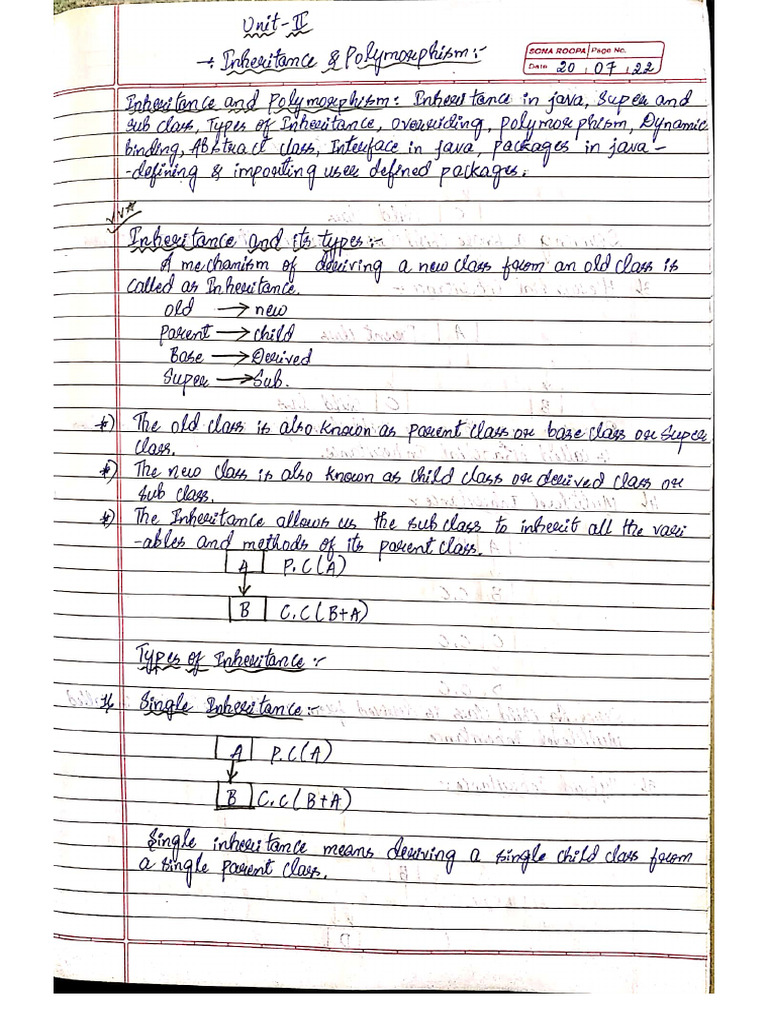 Unit-II
→: Inheritance & Polymorphism:-
SONA ROOPA Page No.
Date 20 07 22
Inheritance and Polymorphism: Inheritance in java, Super and
sub class, Types of Inheritance, overriding, polymorphism, Dynamic
binding, Abstract class, Interface in java, packages in java -
-defining & importing user defined packages.
Inheritance and its types:-
A mechanism of deriving a new class from an old class is
called as Inheritance.
old → new
parent → child
Base → Derived
Super → Sub.
*) The old class is also known as parent class or base class or super
class.
*) The new class is also known as child class or derived class or
sub class.
*) The Inheritance allows us the sub class to inherit all the vari
-ables and methods of its parent class.
A P.C(A)
B C.C(B+A)
Types of Inheritance:-
1. Single Inheritance:-
A P.C(A)
B C.C(B+A)
Single inheritance means deriving a single child class from
a single parent class.